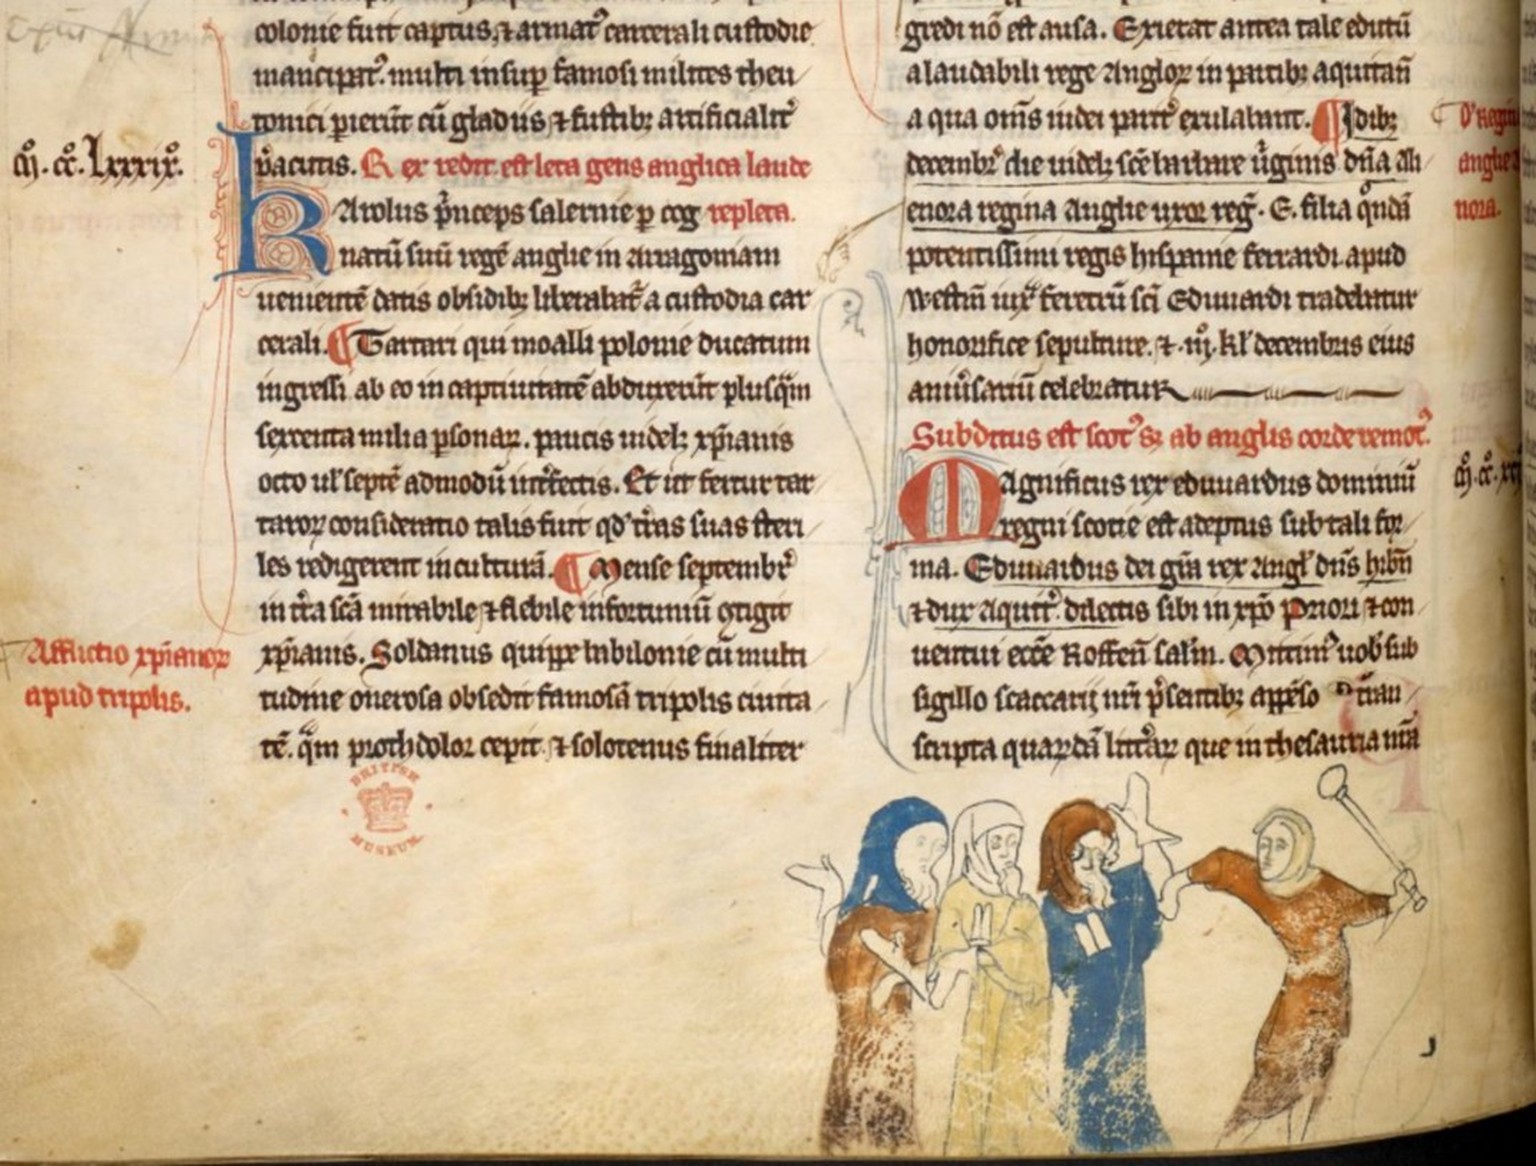 colonie fuit captus, ⁊ armat᷒ carcerali custodie
mancipat᷒. multi insup̲ famosi milites theu
tonici pierūt cū gladiis ⁊ fustibꝫ artificialit᷒
p̲acutis. Rex redit est leta gens anglica laude
repleta.
ꝳ. cͨc. Lxxxix͛.
Karolus p̍nceps salernie p̲ cog
natū suū regē anglie in arragoniam
uenientē datis obsidibꝫ liberabat᷒ a custodia car
cerali. ¶ Tartari qui moalli polonie ducatum
ingressi ab eo in captiuitatē abduxerūt plusq̄m
sexcenta milia p̲sonaꝝ. paucis uidelꝫ xp̄ianis
octo ul̕ septē admodū int̕fectis. Et ut fertur tar
taroꝝ consideratio talis fuit qd̕ t̕ras suas steri
les redigerent in culturā. ¶ Mense septembr̕
in t̕ra scā mirabile ⁊ flebile infortuniū ꝯtigit
xp̄ianis. Soldanus quippe babilonie cū multi
tudine onerosa obsedit famosā tripolis ciuita
tē. q̄m proth dolor cepit ⁊ solotenus finaliter
Afflictio xp̄ianoꝝ
apud tripolis.
BRITISH
MUSEUM
gredi nō est ausa. Exierat antea tale edictū
a laudabili rege Angloꝝ in partibꝫ aquitan̄
a qua om̄s iudei parit᷒ exulabant. ¶ Idibꝫ
decembr̕ die uidelꝫ scē barbare ū̍ginis dn̄a Ali
enora regina Anglie uxor reg̕. E. filia q̄ndā
potentissimi regis hispanie ferrardi. apud
westm̄ iux̕ feretrū sc̄i Edwardi tradebatur
honorifice sepulture. ⁊ .iij. kl̕ decembris eius
anniu̕sariū celebratur
Subditus est scot᷒ sꝫ ab anglis corde remot᷒.
Magnificus rex eduuardus dominiū
regni scotie est adeptus sub tali for
ma. Eduuardus dei gr̄a rex Angl̕ dn̄s hib̕n
⁊ dux Aquit᷒. dilectis sibi in xp̄o Priori ⁊ con
uentui ecc̄e Roffen̄ sal̕m. Mittim᷒ uob̕ sub
sigillo scaccarij nr̄i p̍sentibꝫ app̄so tran
scripta quarūdā litt̕aꝝ que in thesauria nr̄a
D̕ Regin
anglie
nora.